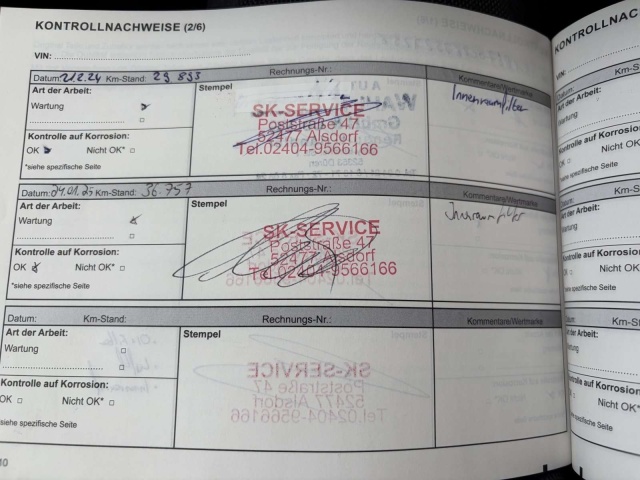 KONTROLLNACHWEISE (2/6)
VIN:
Datum: 21.2.24 Km-Stand: 29 833 Rechnungs-Nr.: Kommentare/Wertmarke
Art der Arbeit: Stempel Innenraumfilter
Wartung
SK-SERVICE
Poststraße 47
52477 Alsdorf
Tel.02404-9566166
Kontrolle auf Korrosion:
OK Nicht OK*
*siehe spezifische Seite
Datum: 04.01.25 Km-Stand: 36.757 Rechnungs-Nr.: Kommentare/Wertmarke
Art der Arbeit: Stempel
Wartung
SK-SERVICE
Poststraße 47
52477 Alsdorf
Tel.02404-9566166
Kontrolle auf Korrosion:
OK Nicht OK*
*siehe spezifische Seite
Datum: Km-Stand: Rechnungs-Nr.: Kommentare/Wertmarke
Art der Arbeit: Stempel
Wartung
SK-SERVICE
Poststraße 47
52477 Alsdorf
Tel.02404-9566166
Kontrolle auf Korrosion:
OK Nicht OK*
siehe spezifische Seite
10
KONTROLLNAC
VIN:
Datum:
Art der Arbeit:
Wartung
Kontrolle auf Korros
OK Nicht OK*
*siehe spezifische Seite
Datum: Km-St
Art der Arbeit:
Wartung
Kontrolle auf Korrosion
OK Nicht OK*
*siehe spezifische Seite
Datum: Km-S
Art der Arbeit:
Wartung
Kontrolle auf Korrosion
OK Nicht OK*
*siehe spezifische Seite